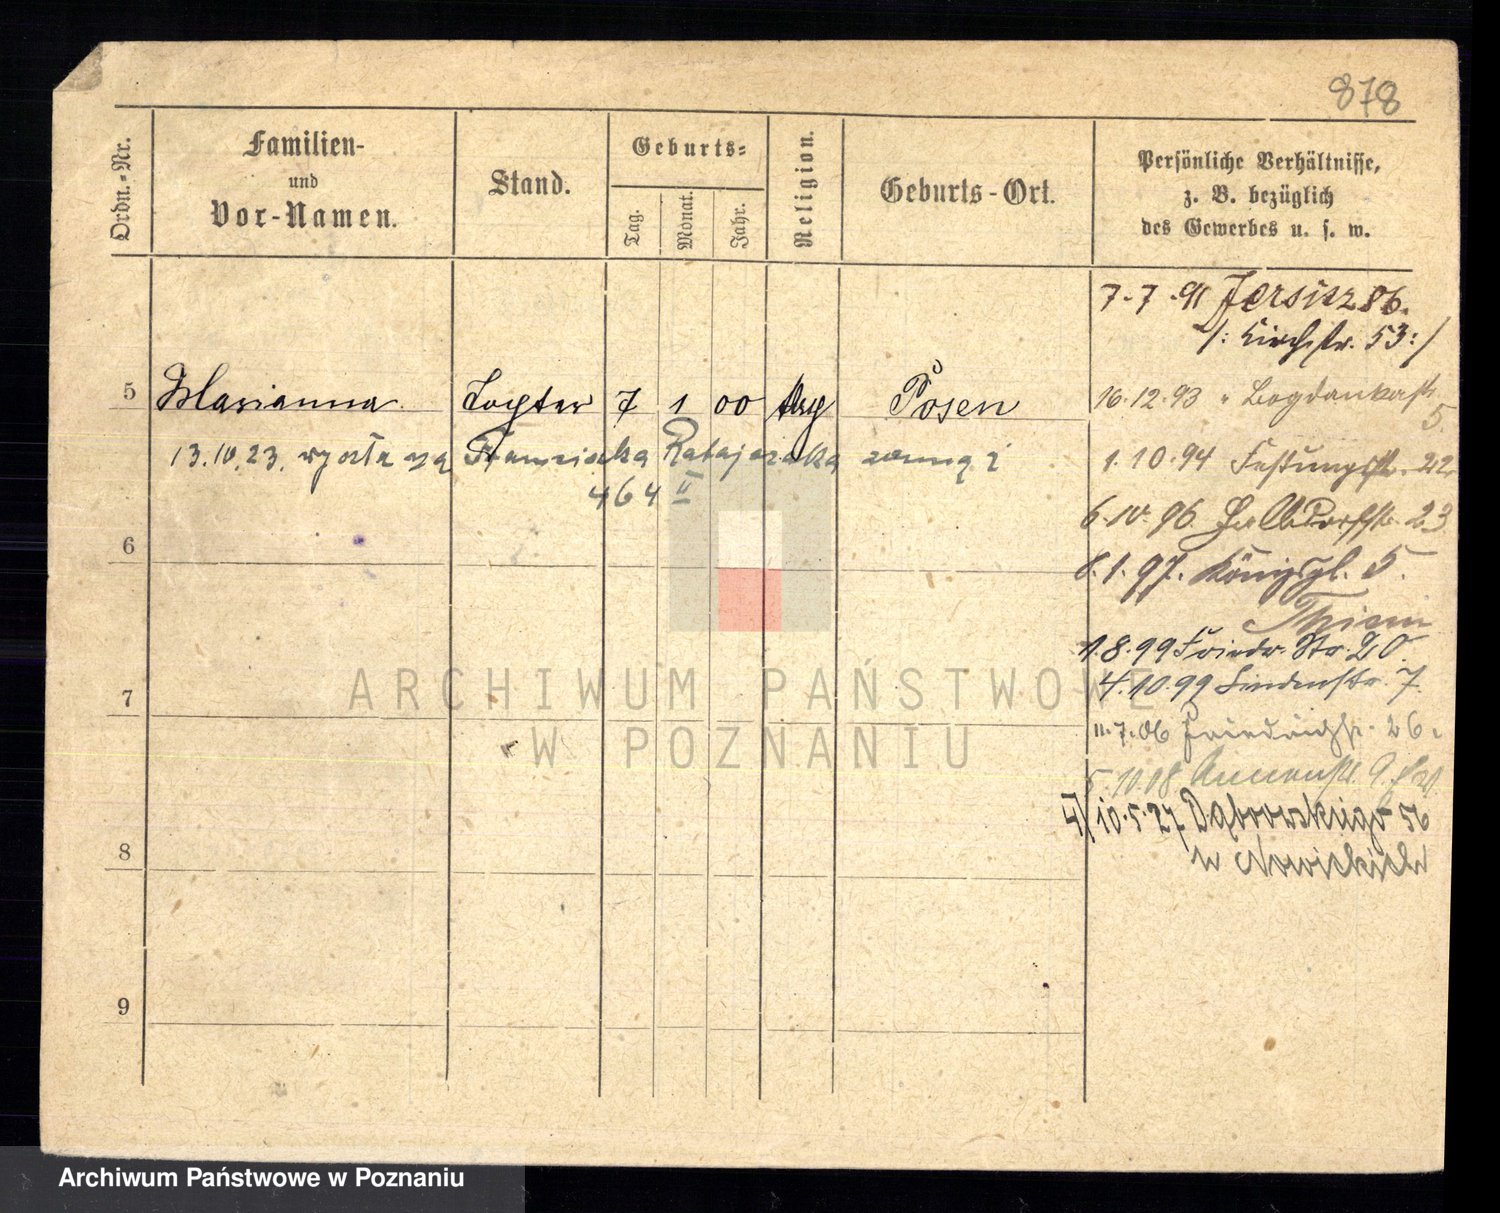 878
Ordn.-Nr.
Familien-
und
Vor-Namen.
Stand.
Geburts-
Tag.
Monat.
Jahr.
Religion.
Geburts-Ort.
Persönliche Verhältnisse,
z. B. bezüglich
des Gewerbes u. s. w.
7.-7.-91 Jersitz 86.
/: Kirchstr. 53 :/
5 Marianna Tochter 7 1 00 Posen
16.12.93 " Bogdankastr
5.
13.10.23. wyszła za Franciszka Ratajczaka
464 II
1.10.94 Festungsstr. 22
6.10.96. Halbdorfstr. 23
6
6.1.97. Königspl. 5.
1.8.99 Friedr. Str 20.
7
4.10.99 Lindenstr. 7.
11.7.06 Friedrichstr. 26.
5.10.18. Annenstr. 9.
10.5.27 Dąbrowskiego 56
8
u Nowickich
9
ARCHIWUM PAŃSTWOWE
W POZNANIU
Archiwum Państwowe w Poznaniu